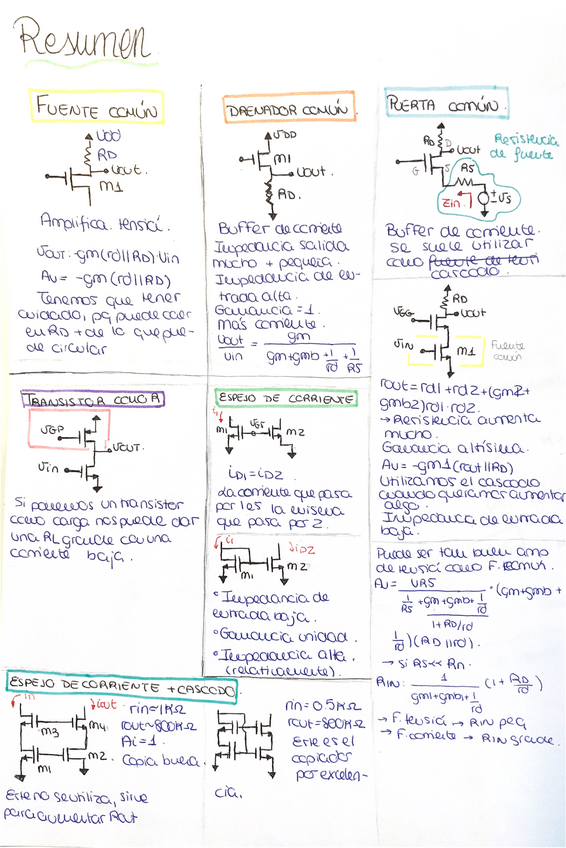 Resumen
FUENTE COMÚN
VDD
RD
Vout.
M1
Amplifica. tensió.
Vout: -gm(rd||RD)·Vin
Av = -gm(rd||RD)
Tenemos que tener
cuidado, pq puede caer
en RD + de lo que pue-
de circular
DRENADOR COMÚN.
VDD
M1
Vout.
RD.
Buffer de corriente
Impedancia salida
mucho + pequeña.
Impedancia de en-
trada alta.
Ganancia = 1.
más corriente.
Vout = gm
Vin gm+gmb+1/rd+1/RS
PUERTA COMÚN.
RD
D
Vout
Resistencia
de fuente
G
S
RS
Zin
Vs
Buffer de corriente.
Se suele utilizar
como fuente de tensi
cascodo.
RD
VGG
Vout
VIN
M1
Fuente
común
rout = rd1 + rd2 + (gm2+
gmb2)rd1·rd2.
→ Resistencia aumenta
mucho.
Ganancia altísima.
Av = -gm1(rout||RD)
Utilizamos el cascodo
cuando queramos aumentar
algo.
Impedancia de entrada
baja.
Puede ser tan buen amp
de tensió como F. común.
Av = 1/RS
1/RS + gm + gmb + 1/rd
1+RD/rd
·(gm+gmb+
1/rd)(RD||rd).
→ Si RS<< Rn.
RIN: 1/(gm1+gmb+1/rd) (1+RD/rd)
→ F. tensió → RIN peq
→ F. corriente → RIN grande.
TRANSISTOR COMO R
VGP
VOUT.
Vin
Si ponemos un transistor
como carga nos puede dar
una RL grande con una
corriente baja.
ESPEJO DE CORRIENTE
i1
M1
VGS
M2
iD1 = iD2
La corriente que pasa
por 1 es la misma
que pasa por 2.
i1
iD2
M1
M2
° Impedancia de
entrada baja.
° Ganancia unidad.
° Impedancia alta.
(relativamente).
ESPEJO DE CORRIENTE + CASCODO.
iin
iout
M3
M4
M1
M2
rin≈1KΩ
rout≈800KΩ
Ai=1.
Copia buena.
Este no se utiliza, sirve
para aumentar Rout
rin = 0.5KΩ
rout = 800KΩ
Este es el
copiador
por excelen-
cia.